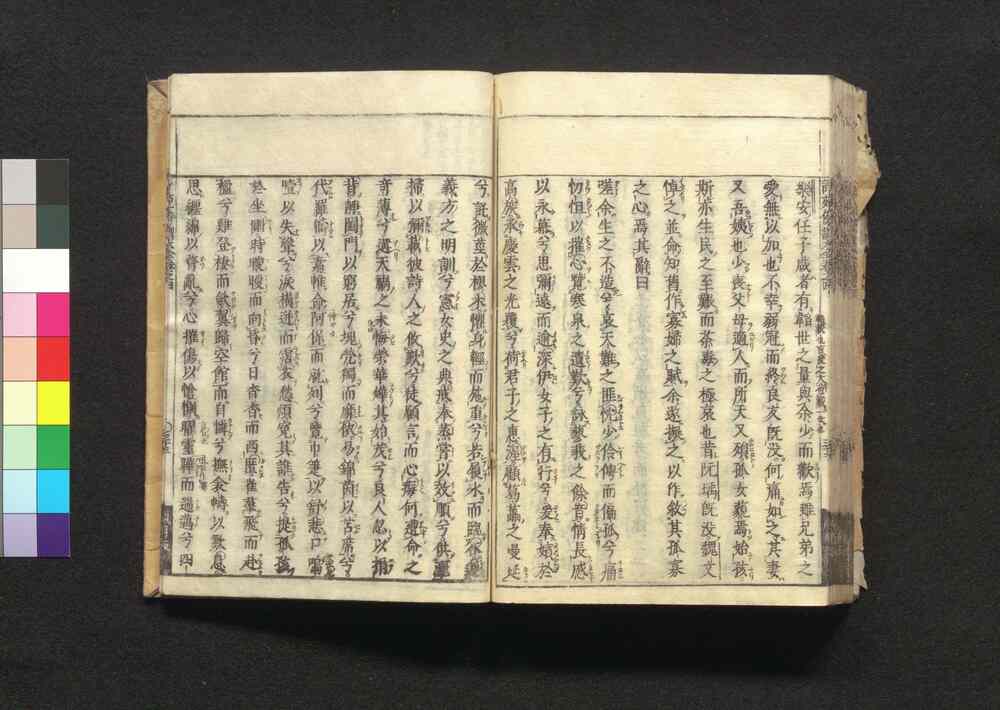 樂安任子咸者有韜世之量與余少而歡焉雖兄弟之
愛無以加也不幸弱冠而終良友既没何痛如之其妻
又吾姨也少喪父母適人而所天又殞孤女藐焉始孩
斯亦生民之至艱而荼毒之極哀也昔阮瑀既没魏文
悼之並命知舊作寡婦之賦余遂擬之以作敘其孤寡
之心焉其辭曰
嗟余生之不造兮哀天難之匪忱少伶俜而偏孤兮痛
忉怛以摧心覽寒泉之遺歎兮詠蓼莪之餘音情長慼
以永慕兮思彌遠而逾深伊女子之有行兮爰奉嬪於
高族承慶雲之光覆兮荷君子之惠渥顧葛藟之蔓延
兮託微莖於樛木懼身輕而施重兮若履氷而臨谷遵
義方之明訓兮憲女史之典戒奉蒸嘗以效順兮供灑
掃以彌載彼詩人之攸歎兮徒願言而心痗何遭命之
奇薄兮遘天禍之未悔榮華曄其始茂兮良人忽以捐
背靜闔門以窮居兮塊煢獨而靡依易錦茵以苫席兮
代羅幬以素帷命阿保而就列兮覽巾箑以舒悲口嗚
噎以失聲兮淚橫迸而霑衣愁煩冤其誰告兮提孤孩
於坐側時曖曖而向昏兮日杳杳而西匿雀羣飛而赴
楹兮雞登棲而斂翼歸空館而自憐兮撫衾裯以歎息
思纏綿以瞀亂兮心摧傷以愴惻曜靈曄而遄邁兮四